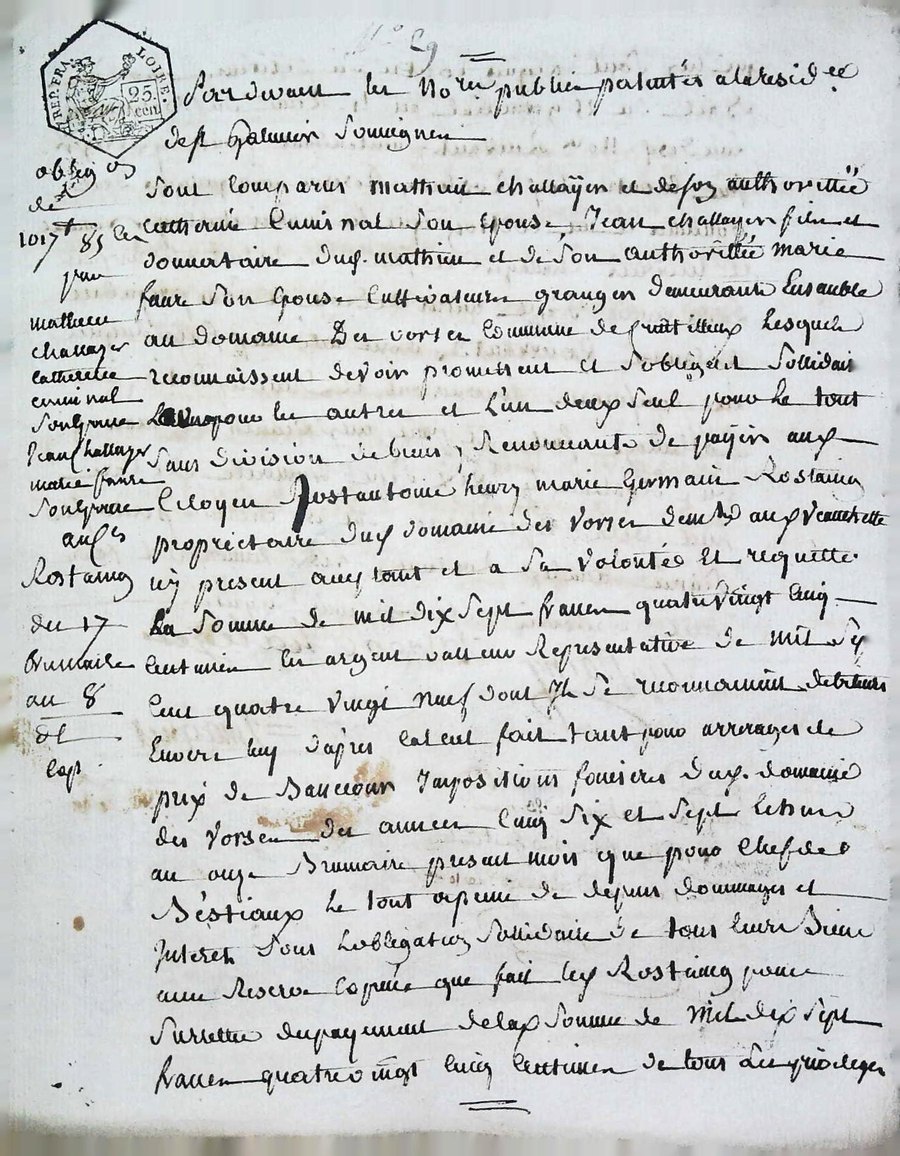 N.° 89
REP. FRA. LOIRE. 25 cen
Pardevant les No.res publics patentés a la resid.ce
de St Galmier Soussignés
Sont Comparus mathieu challayer et de son authorittée
Catherine Cuminal Son Epouse, Jean challayer fils et
donnataire dud. mathieu et de Son authorittée marie
faure Son Epouse Cultivateurs grangers demeurants Ensemble
au domaine Des vorses Commune de Lesquels
reconnaissent devoir promettent et Sobligent Sollidair
L'un pour les autres et L'un deux Seul pour Le tout
Sans division de biens, Renonceants de payer aux
Citoyen Just antoine henry marie Germain Rostaing
proprietaire dud domaine des Vorses dem.t aux Veauchette
icy present acceptant et a Sa Volontée Et requette
La Somme de mil dix Sept francs quatre Vingt Cinq
Centimes En argent valleur Representative de mil
Cent quatre Vingt Neuf dont Ils Se reconnaissent debiteurs
Envers luy d'après Calcul fait tant pour arrerages de
prix de Impositions foncieres dud. domaine
des Vorses des années Cinq Six et Sept Echus
au onze Brumaire present mois que pour Cheptel de
Béstiaux Le tout a peine de depens dommages et
Interets Sous Lobligation Sollidaire de tous leurs Biens
avec Reserve Expresse que fait led Rostaing pour
Surette du payement de lad Somme de Mil dix Sept
francs quatre vingt Cinq Centimes de tous Les privileges
oblig.on
de
1017 # 85 Ces
par
mathieu
challayer
Catherine
Cuminal
Son Epouse
Jean Challayer
marie faure
Son Epouse
au C.en
Rostaing
du 17
Brumaire
an 8
Exp